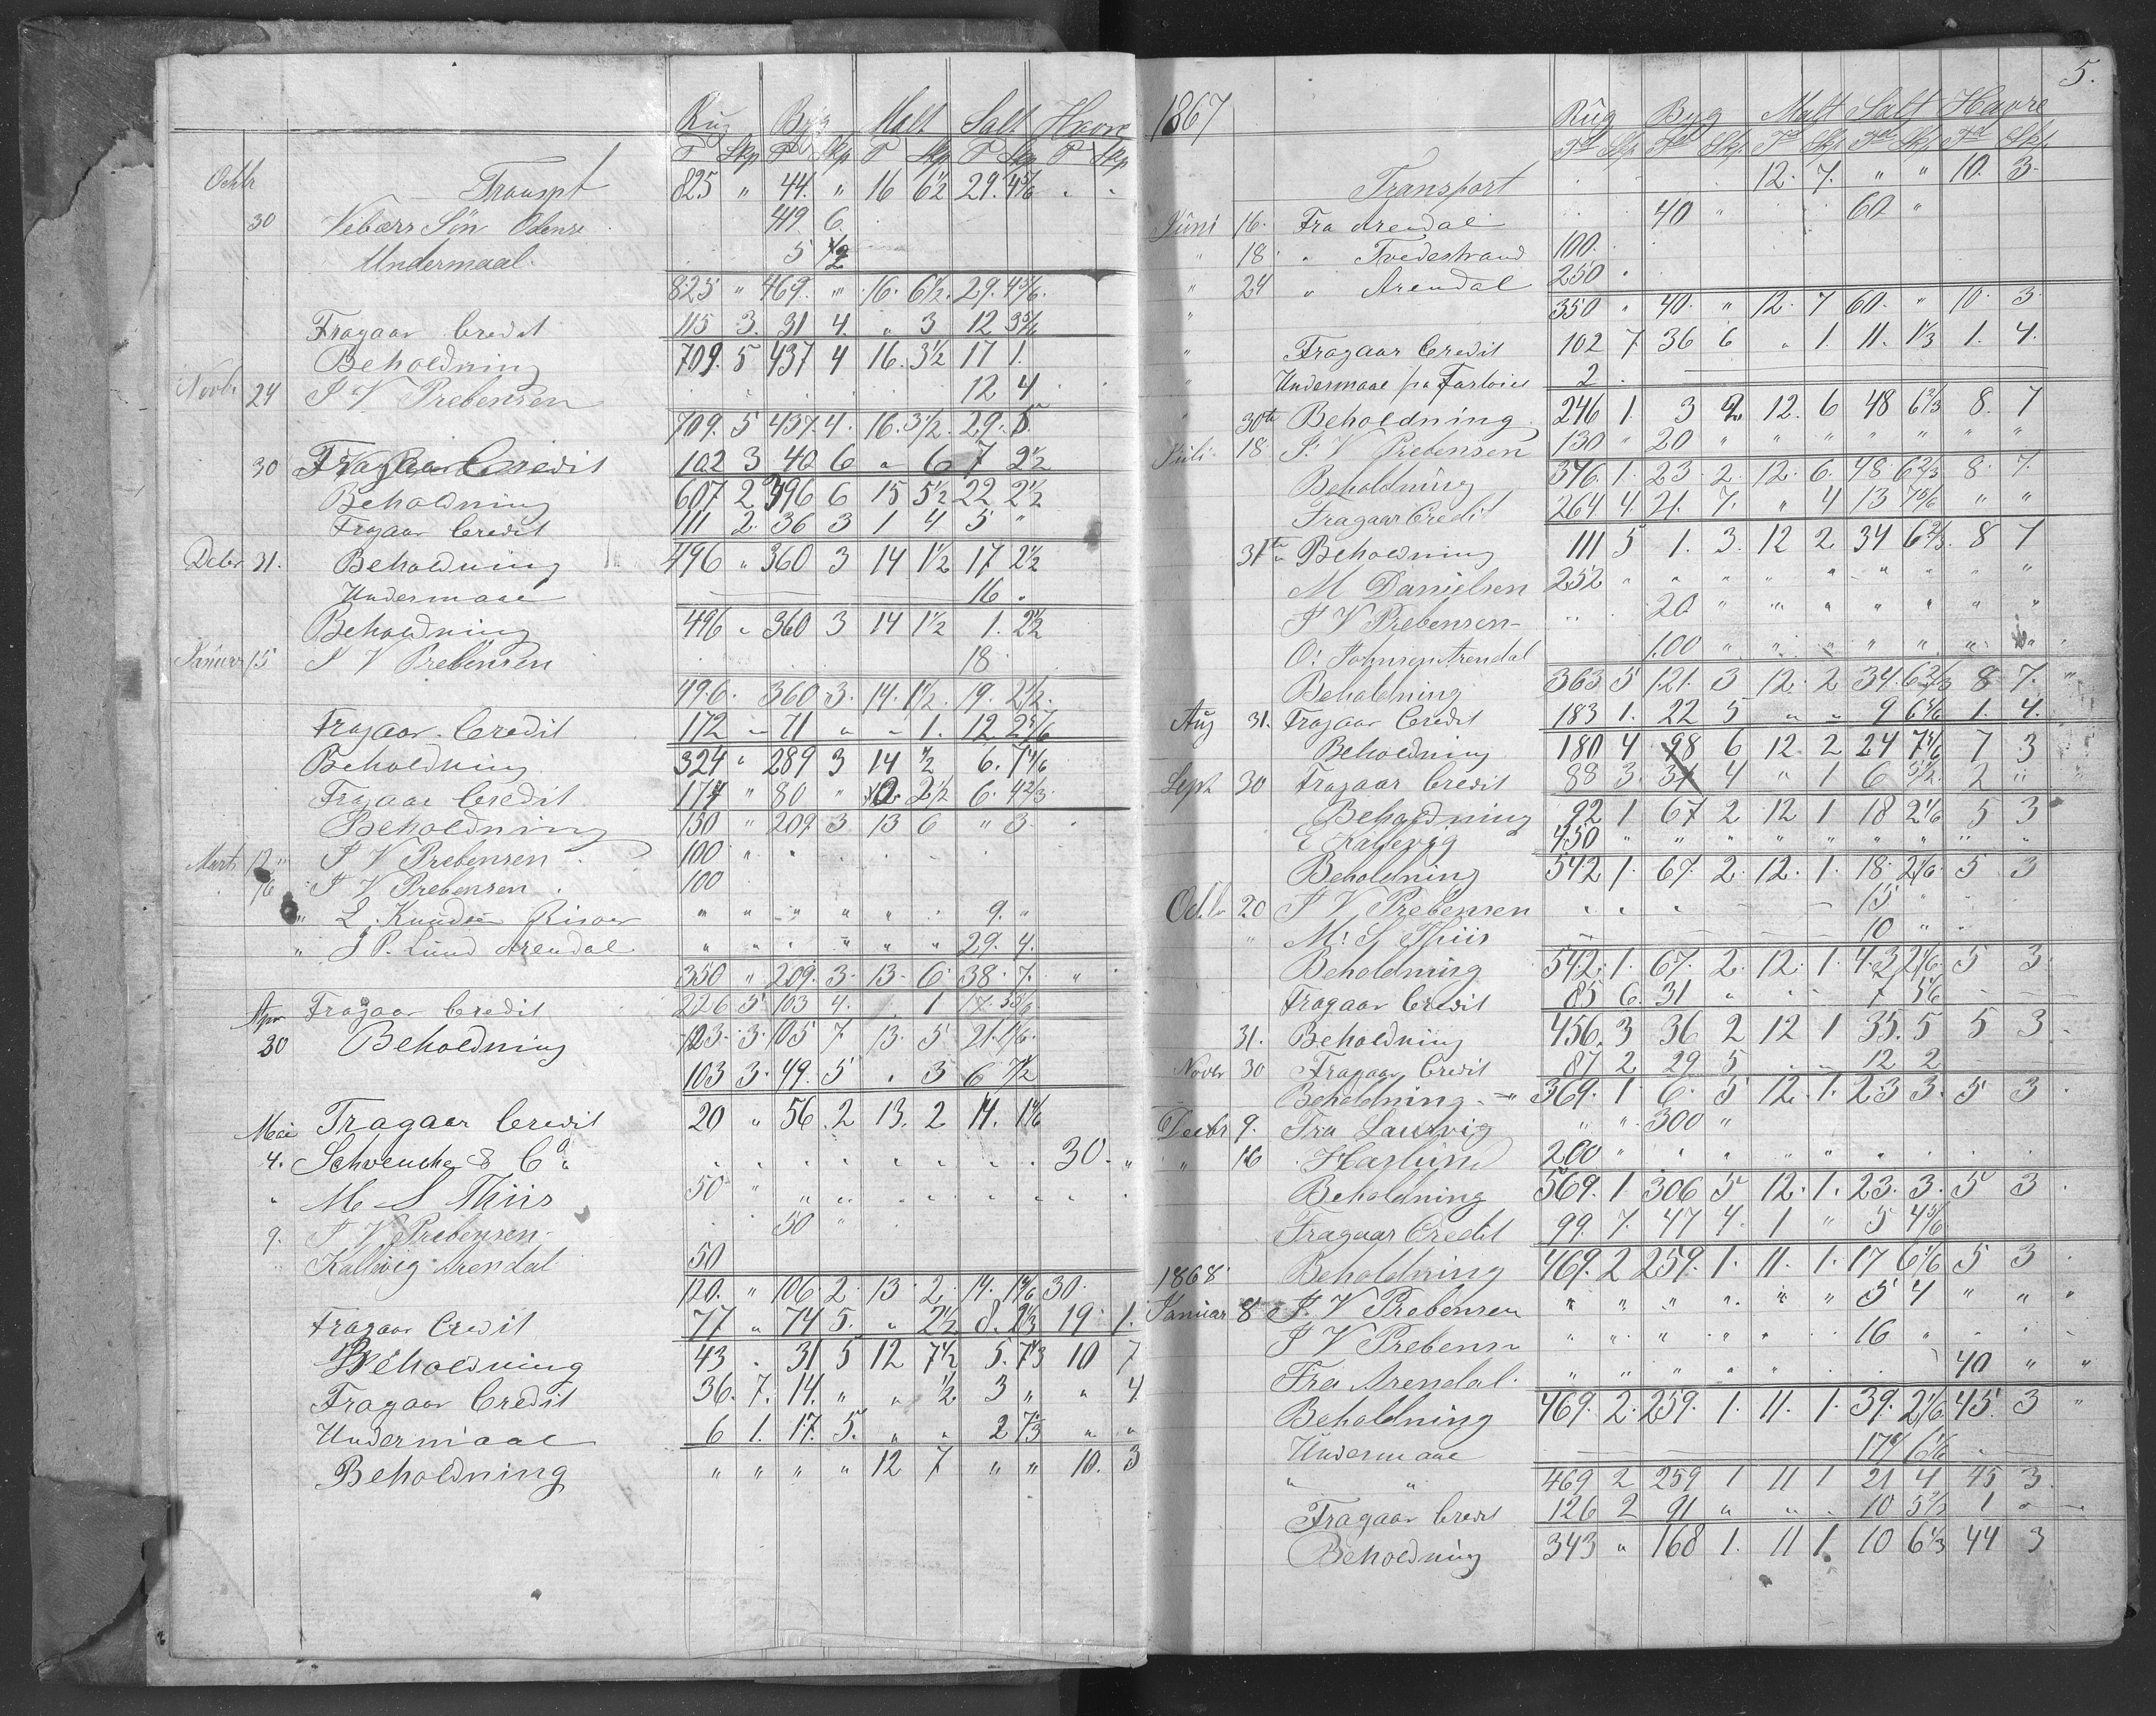 Rug Byg Malt Salt Havre
T Skp T Skp T Skp T Skp T Skp
Octbr Transpt 825 " 44. " 16 6 1/2 29. 4 5/6 " "
30 Odense 419 6
Undermaal 5 1/2
825 " 469. " 16. 6 1/2. 29. 4 5/6
Fragaar Credit 115 3. 31 4. " 3 12 3 5/6
Beholdning 709. 5 437 4 16. 3 1/2 17 1.
Novbr 24 J V Prebensen 12 4
709. 5 437. 4. 16. 3 1/2. 29. 5
30 Fragaar Credit 102 3 40 6 " 6 7 2 1/2
Beholdning 607 2 396 6 15 5 1/2 22 2 1/2
Fragaar Credit 111 2. 36 3 1 4 5 "
Debr 31. Beholdning 496 " 360 3 14 1 1/2 17 2 1/2
Undermaal 16 "
Beholdning 496 " 360 3 14 1 1/2 1. 2 1/2
Januar 15 J V Prebensen 18
496. 360 3. 14. 1 1/2. 19. 2 1/2.
Fragaar Credit 172 " 71 " " 1. 12. 2 5/6
Beholdning 324 " 289 3 14 1/2 6. 7 4/6
Fragaar Credit 174 " 80 " 2 1/2 6. 4 2/3
Beholdning 150 " 209 3 13 6 " 3.
Marts 12 J V Prebensen 100 "
16 J V Prebensen 100
" L. Knudsen Risoer " " " " " " 9. "
" J P. Lund Arendal " " " " " " 29. 4.
350 " 209. 3. 13. 6. 38. 7. "
Apr Fragaar Credit 226 5 103 4. 1 17. 5 5/6
30 Beholdning 123. 3. 105 7 13. 5 21. 1 1/6.
103 3. 49. 5 " 3 6 7 1/2
Mai Fragaar Credit 20 " 56. 2 13. 2 14. 1 4/6
4. Schvencke & Co. 30. "
" M S Thiis 50 "
9. J V Prebensen 50 "
Kallevig Arendal 50
120. " 106. 2. 13. 2. 14. 1 4/6 30.
Fragaar Credit 77 " 74 5. " 2 1/2 8. 2 1/3 19. 1.
Beholdning 43 " 31 5 12 7 1/2 5. 7 1/3 10 7
Fragaar Credit 36. 7. 14. " " 1/2 3 " " 4.
Undermaal 6 1. 17. 5. " " 2 7 1/3 " "
Beholdning " " " " 12 7 " " 10. 3
5.
1867 Rug Byg Malt Salt Havre
Td Skp Td Skp T Skp Td Skp Td Skp
Transport 12. 7. " " 10. 3.
Juni 16. Fra Arendal 40 " 60 "
" 18. " Tvedestrand 100.
" 24 " Arendal 250 "
" 350 " 40. " 12. 7 60. " 10. 3.
" Fragaar Credit 102 7 36 6 " 1 11. 1 1/3 1. 4.
" Undermaal 2
" 30te Beholdning 246 1. 3 2 12. 6 48 6 2/3 8. 7
Juli 18 J. V Prebensen 130 " 20 " " " " " " "
Beholdning 376. 1. 23. 2. 12. 6. 48 6 2/3. 8. 7.
Fragaar Credit 264 4. 21. 7. " 4 13 7 5/6 " "
31te Beholdning 111 5 1. 3. 12 2 34 6 2/3. 8 7
M Danielsen 252 " " " " " " " " "
J V Prebensen 20 " " " " " " "
O: Johnsen Arendal 100 " " " " " "
Beholdning 363 5 121. 3 12. 2 34. 6 2/3 8 7. "
Aug 31. Fragaar Credit 183 1. 22 5 " " 9 6 5/6 1. 4.
Beholdning 180 4 98 6 12. 2 24 7 5/6 7 3
Sept 30 Fragaar Credit 88 3. 31 4 " 1 6 5 1/2. 2 "
Beholdning 92 1 67 2 12 1 18 2 1/6 5 3
E Kallevig 450 " " " " " " " " "
Beholdning 542 1. 67. 2. 12. 1. 18. 2 1/6. 5 3
Octbr 20 J V Prebensen 15 "
" M: S Thiis 10 "
Beholdning 542. 1. 67. 2. 12. 1. 43 2 1/6. 5 3.
Fragaar Credit 85 6. 31 " 7 5 1/6
31. Beholdning 456. 3 36 2 12 1 35. 5 5 3.
Novbr 30 Fragaar Credit 87 2 29 5 12 2
Beholdning " 369. 1 6. 5 12. 1. 23 3. 5 3.
Decbr 9. Fra Laurvig " " 300 "
" 16 Haslund 200 "
Beholdning 569. 1. 306 5 12. 1. 23. 3. 5 3.
Fragaar Credit 99. 7. 47 4. 1 " 5 4 5/6.
Beholdning 469. 2 259. 1. 11. 1. 17 6 1/6 5 3
1868
Januar 8 J V Prebensen " " " " " " 5 4 " "
J V Prebensen " " " " " " 16 "
Fra Arendal. " " " " " " 40 " "
Beholdning 469. 2. 259. 1. 11. 1. 39. 2 1/6. 45 3 "
Undermaal 17 6 1/6
" " 469 2 259 1 11 1 21 4 45 3.
Fragaar Credit 126 2 91 " " " 10 5 2/3 1 "
Beholdning 343 " 168 1. 11 1. 10 6 1/3 44 3